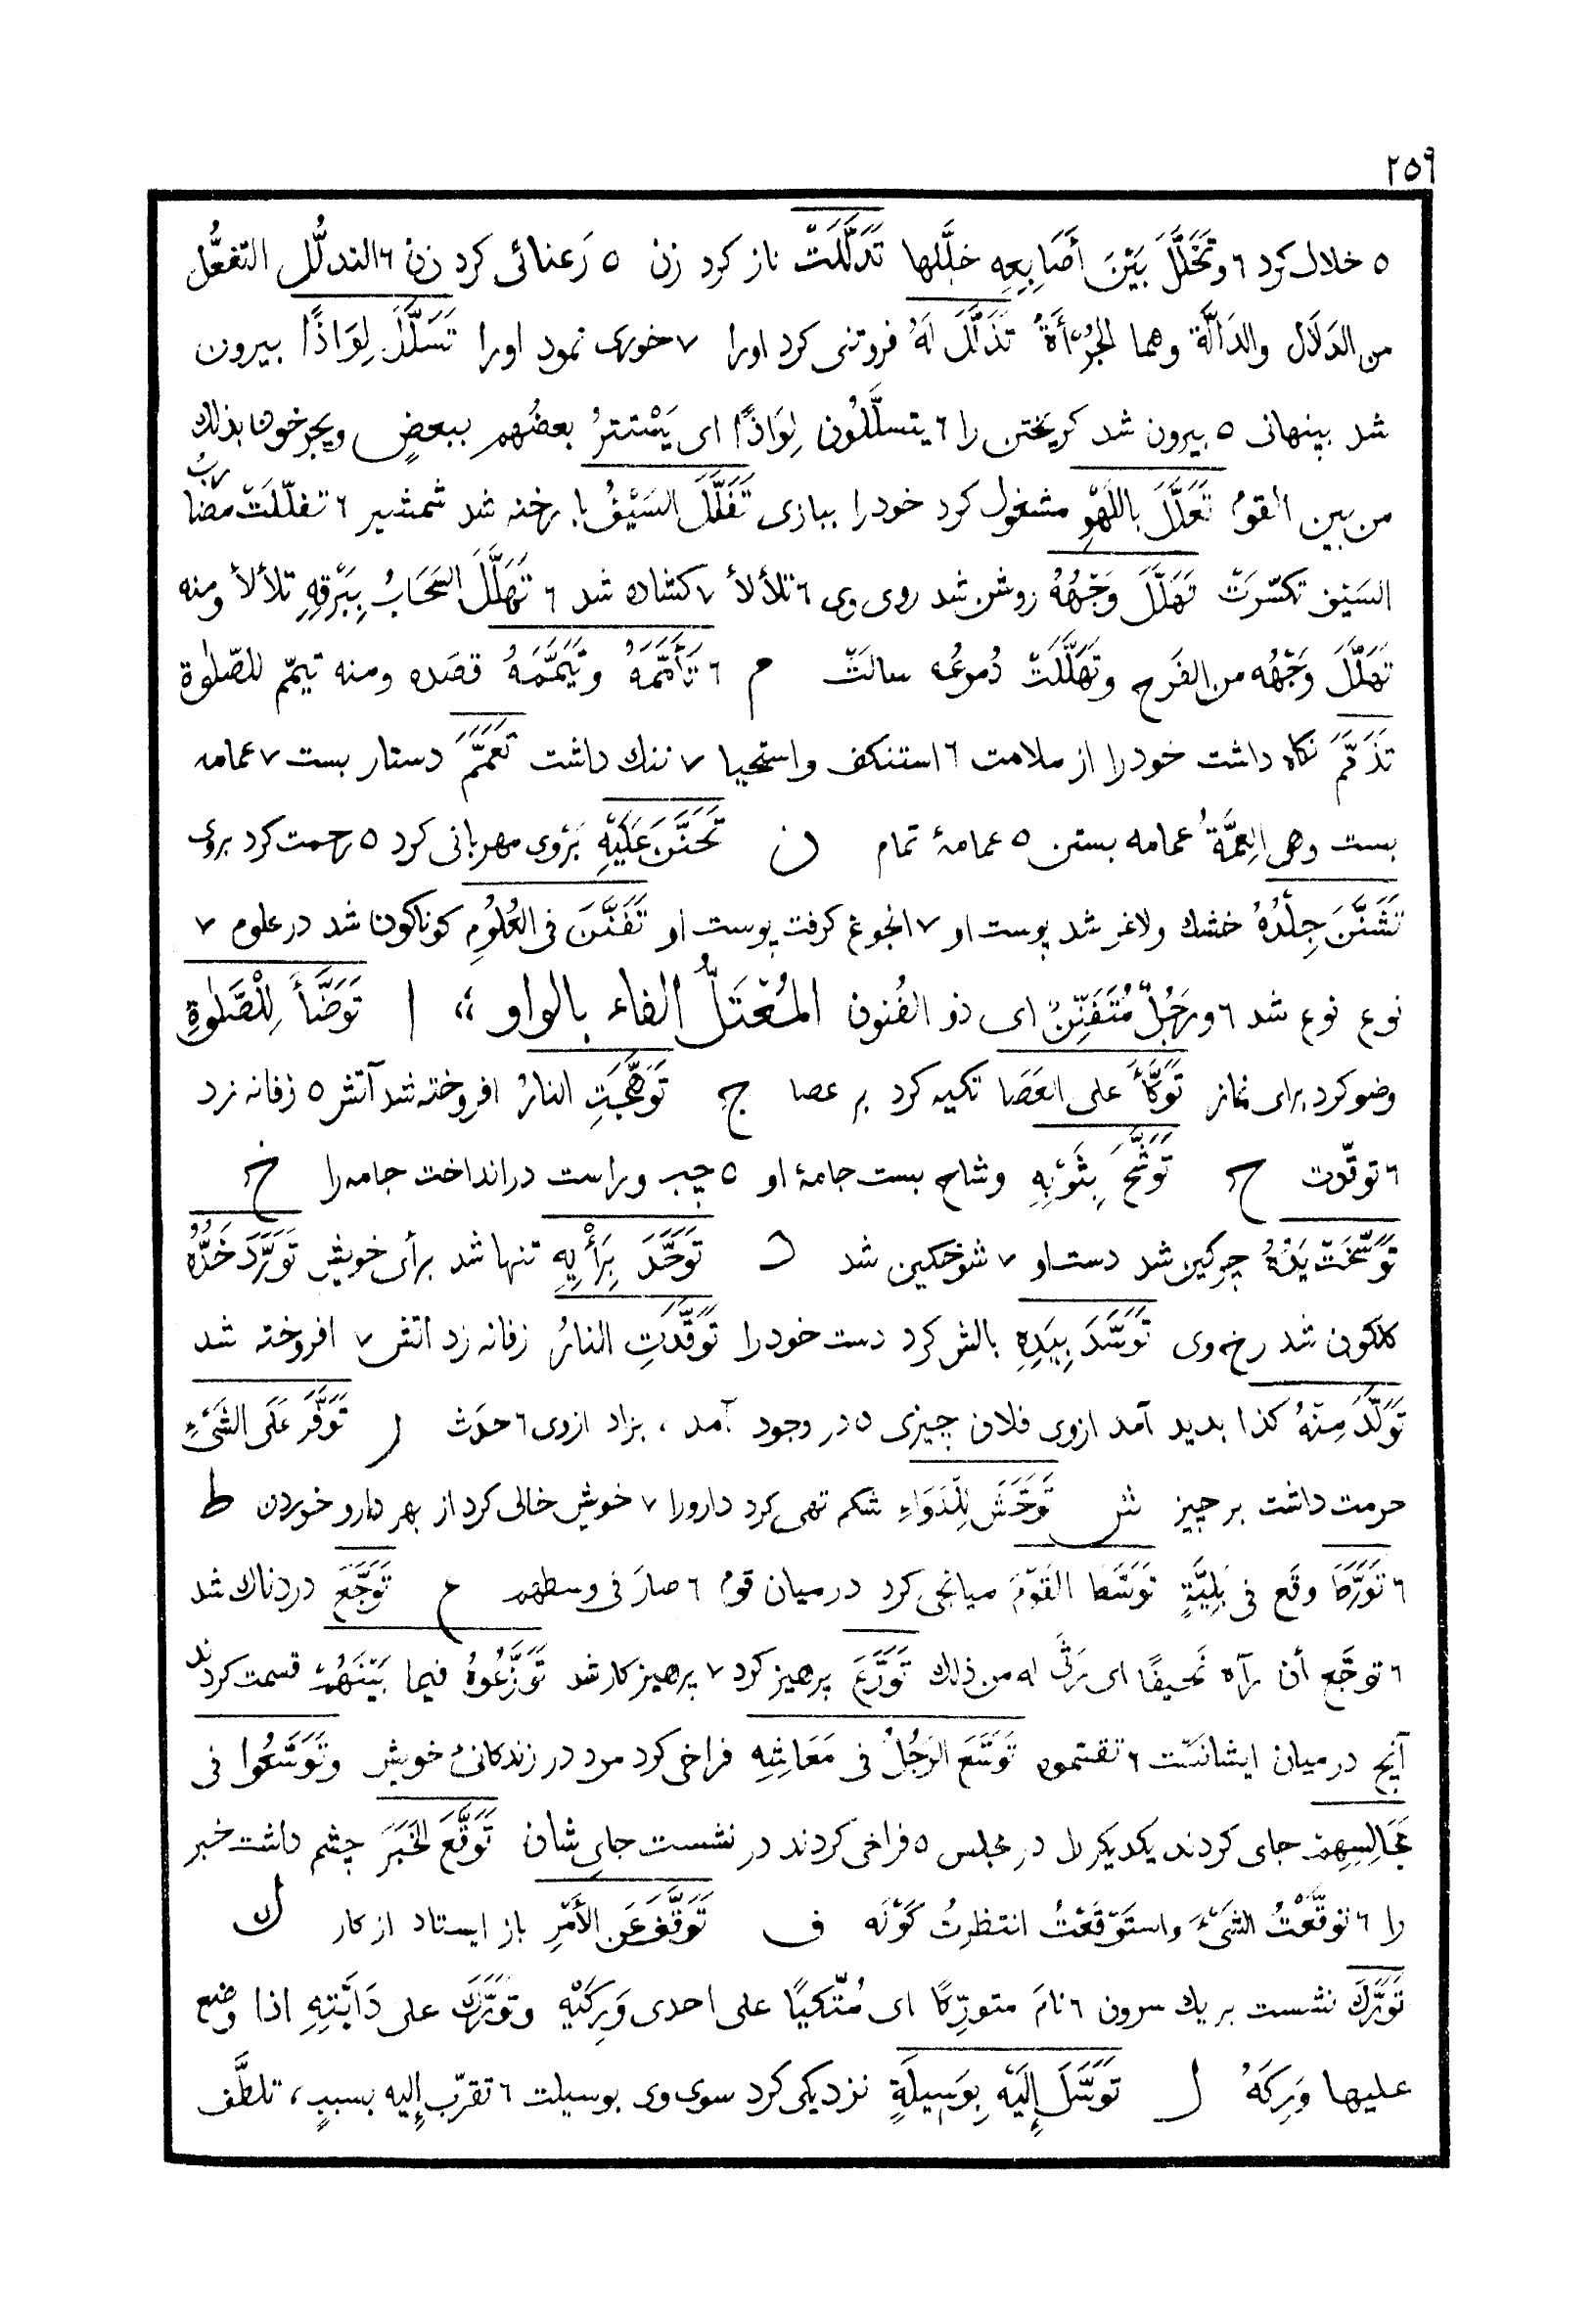 ٢٥٩
٥ خلال كرد ٦ وتَخَلَّلَ بَيْنَ أَصَابِعِهِ خلَّلها تَدَلَّلَتْ ناز كرد زن ٥ رَعنائى كرد زن ٦ التدلُّل التفعُّل
من الدَلَال والدَالَّة وهما الجُرْأَةُ تَذَلَّلَ لَهُ فروتنى كرد اورا ٧ خورى نمود اورا تَسَلَّلَ لِوَاذًا بيرون
شد بپنهانى ٥ بيرون شد كريختن را ٦ يتسلَّلُون لِوَاذًا اى يَسْتترُ بعضُهم ببعضٍ ويجرخون بذلك
من بين القوم تَعَلَّلَ بِاللَّهْوِ مشغول كرد خود را ببازى تَفَلَّلَ السَيْفُ با رخنه شد شمشير ٦ تفلّلَتْ مضارب
السَيْف تكسّرَتْ تَهَلَّلَ وَجْهُهُ روشن شد روى وى ٦ تلألأ ٧ كشاده شد ٦ تَهَلَّلَ السَحَابُ بِبَرْقِهِ تلألأ ومنه
تَهَلَّلَ وَجْهُه من الفَرح وتَهَلَّلَتْ دُموعُه سالَتْ م ٦ تَأَمَّمَهُ وتَيَمَّمَهُ قصَده ومنه تيمّم للصّلوة
تَذَمَّمَ نكاه داشت خود را از ملامت ٦ استنكف واستحيا ٧ ننك داشت تَعَمَّمَ دستار بست ٧ عمامه
بست وهى العِمَّةُ عمامه بستن ٥ عمامۀ تمام ن تَحَنَّنَ عَلَيْهِ بَرْوى مهربانى كرد ٥ رحمت كرد بروى
تَشَنَّنَ جِلْدُهُ خشك ولاغر شد پوست او ٧ انجوغ كرفت پوست او تَفَنَّنَ فى العُلُومِ كوناكون شد در علوم ٧
نوع نوع شد ٦ ورَجُلٌ مُتَفَنِّنٌ اى ذو الفُنون المُعْتَلُّ الفاء بالواو ؛؛ ا تَوَضَّأَ لِلْصَّلوةِ
وضو كرد براى نماز تَوَكَّأَ على العَصَا تكيه كرد بر عصا ج تَوَهَّجَتِ النارُ افروخته شد آتش ٥ زفانه زد
٦ توقّدت ح تَوَشَّحَ بِثَوْبِهِ وشاح بست جامۀ او ٥ چپ وراست درانداخت جامه را خ
تَوَسَّخَتْ يَدُهُ چركين شد دست او ٧ شوخكين شد د تَوَحَّدَ بِرَأْيِهِ تنها شد برأى خويش تَوَرَّدَ خَدُّهُ
كلكون شد رخ وى تَوَسَّدَ بِيَدِهِ بالش كرد دست خود را تَوَقَّدَتِ النارُ زفانه زد اتش ٧ افروخته شد
تَوَلَّدَ مِنْهُ كذا بديد آمد ازوى فلان چيزى ٥ در وجود آمد ، بزاد ازوى ٦ حدَث ر تَوَفَّرَ عَلَى الشَىْءِ
حرمت داشت بر چيز ش تَوَحَّشَ لِلْدَوَاءِ شكم تهى كرد دارو را ٧ خويش خالى كرد از بهر دارو خوردن ط
٦ تَوَرَّطَ وقَع فى بَلِيَّةٍ تَوَسَّطَ القَوْمَ ميانجى كرد در ميان قوم ٦ صارَ فى وسطهم ع تَوَجَّعَ دردناك شد
٦ توجَّع أن رآه نَحيفًا اى رَثَى له من ذلك تَوَرَّعَ پرهيز كرد ٧ پرهيزكار شد تَوَزَّعُوهُ فيما بَيْنَهُمْ قسمت كردند
آنچ در ميان ايشانست ٦ تقسّموه تَوَسَّعَ الرَجُلُ فى مَعَاشِهِ فراخى كرد مرد در زندكانئ خويش وتَوَسَّعُوا فى
مَجَالِسِهِمْ جاى كردند يكديكر را در مجلس ٥ فراخى كردند در نشست جاى شان تَوَقَّعَ الخَبَرَ چشم داشت خبر
را ٦ توقَّعْتُ الشَىْءَ واستَوْقَعْتُ انتظرتُ كَوْنَه ف تَوَقَّفَ عَنِ الأَمْرِ باز ايستاد از كار ك
تَوَرَّكَ نشست بر يك سرون ٦ نامَ متورِّكا اى مُتّكيًا على احدى وَرِكَيْهِ وتَوَرَّكَ على دَابَّتِهِ اذا وضع
عليها وَرِكَهُ ل تَوَسَّلَ إِلَيْهِ بِوَسِيلَةٍ نزديكى كرد سوى وى بوسيلت ٦ تقرّب إليه بسببٍ ، تلطَّف